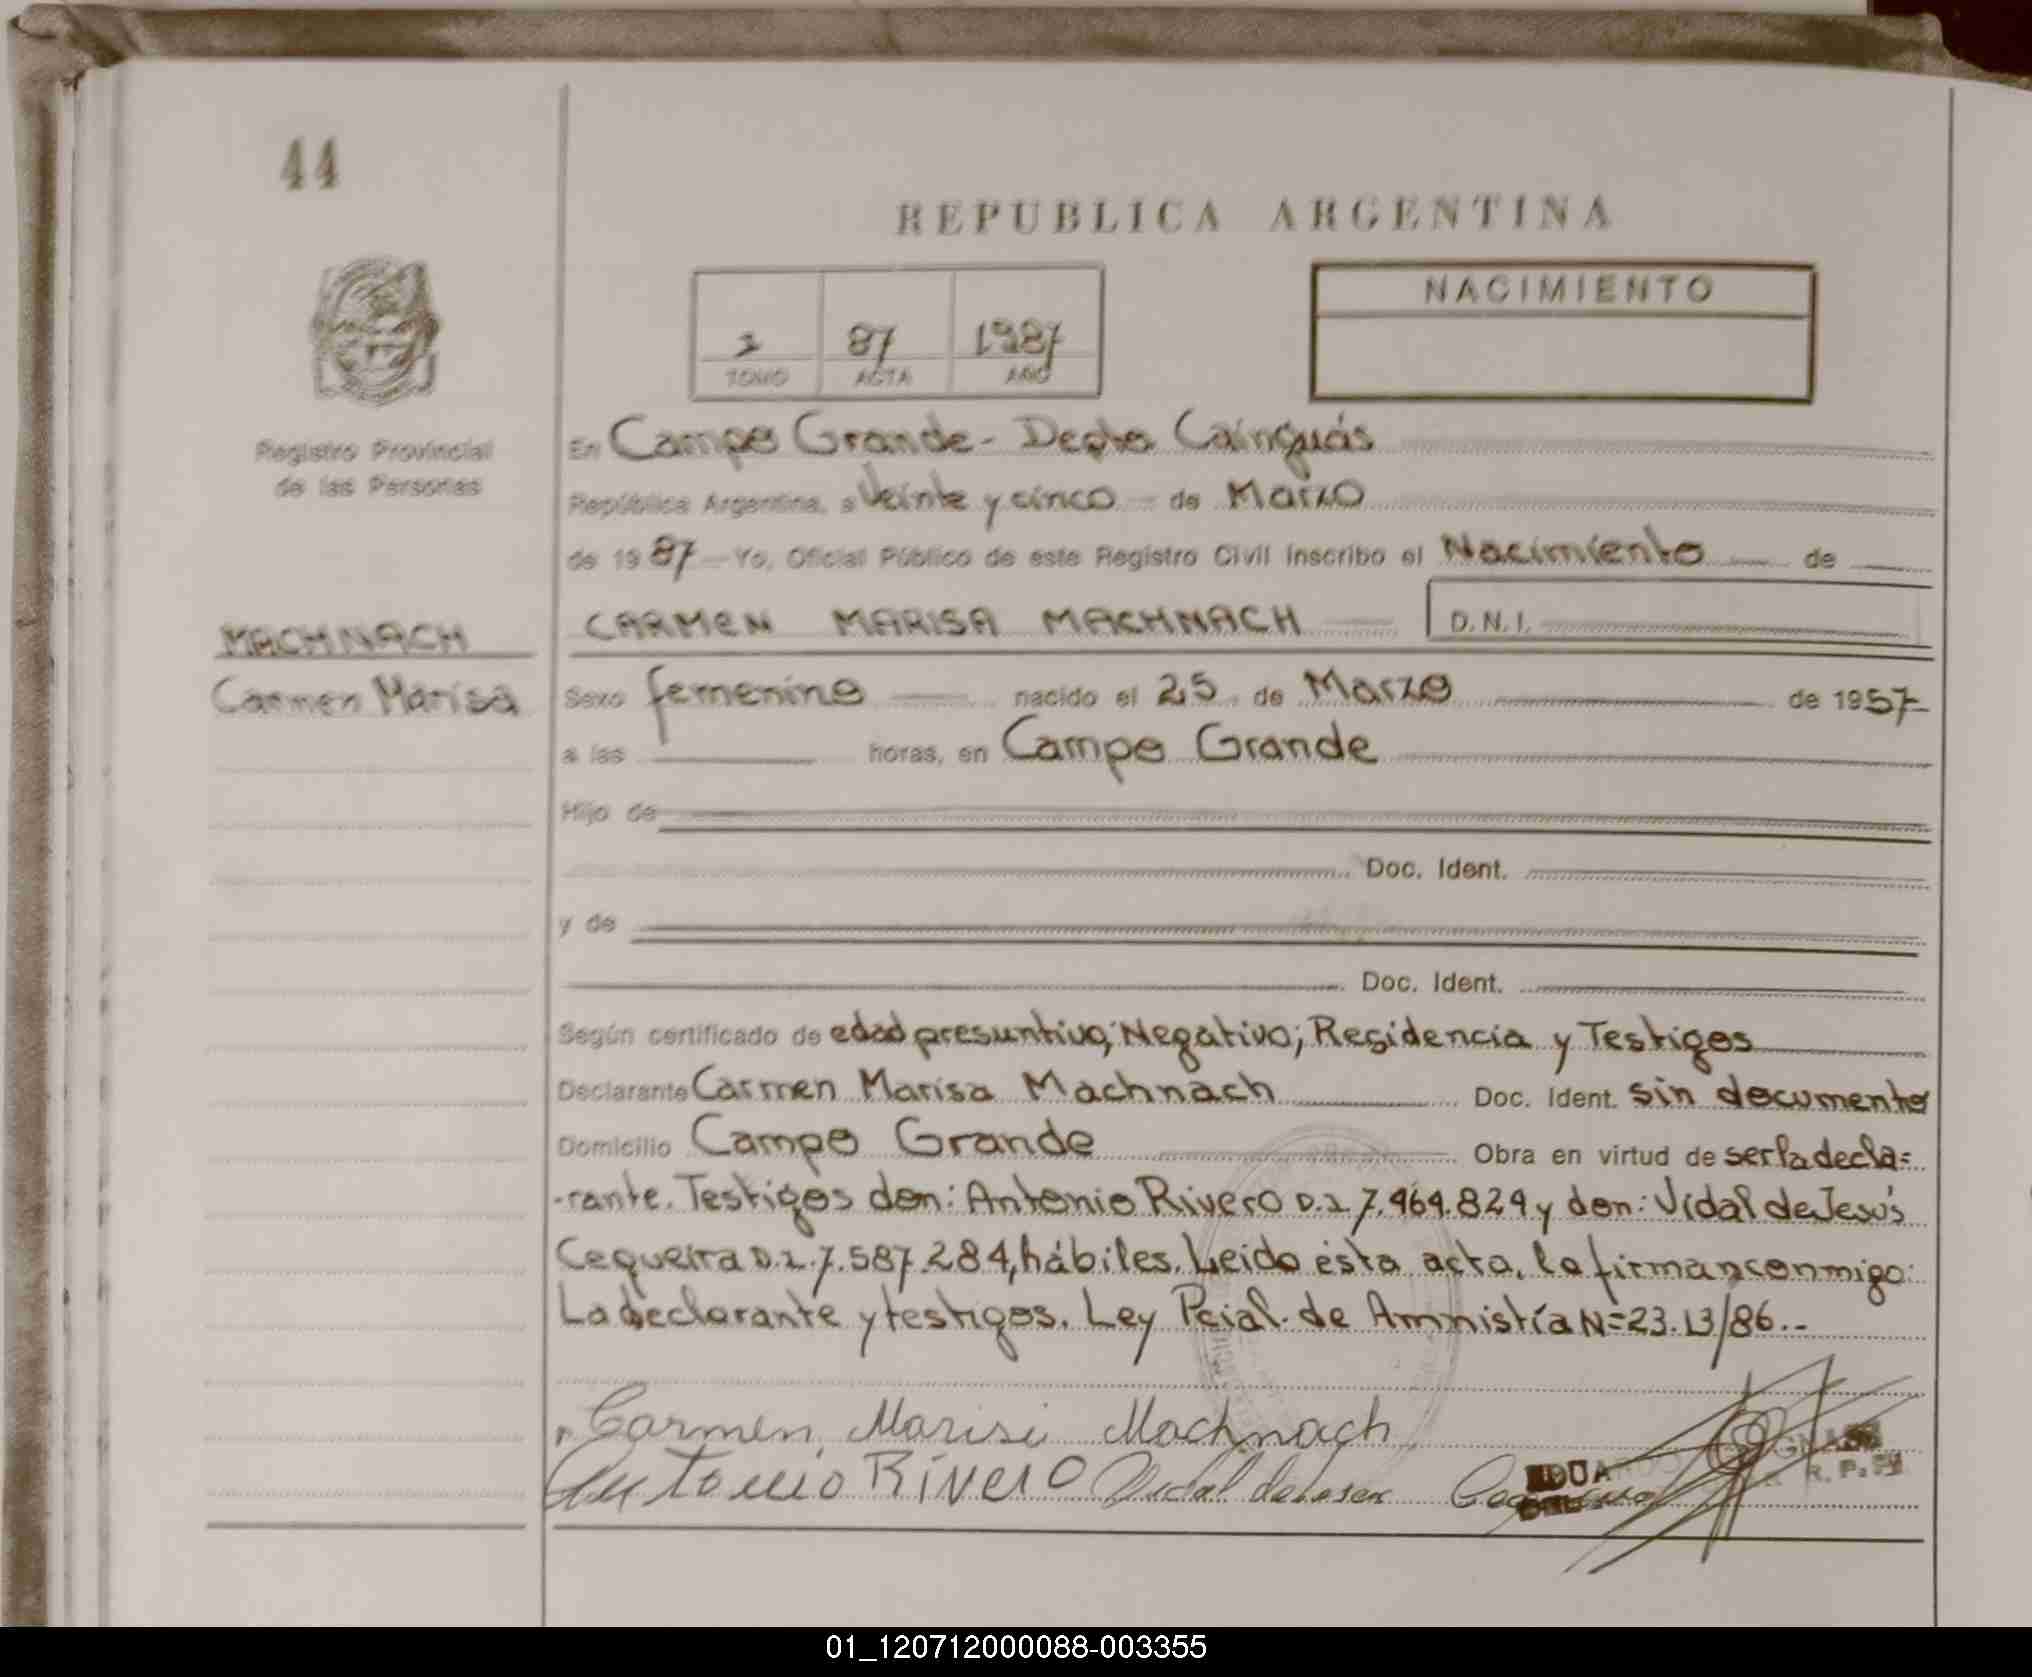 44
REPUBLICA ARGENTINA
NACIMIENTO
87 1987
TOMO ACTA AÑO
Registro Provincial
de las Personas
En Campo Grande - Depto Cainguás
República Argentina, a Veinte y cinco - de Marzo
de 1987 - Yo, Oficial Público de este Registro Civil inscribo el Nacimiento - de
MACHNACH
Carmen Marisa
CARMEN MARISA MACHNACH - D.N.I.
Sexo femenino - nacido el 25 de Marzo de 1957-
a las horas, en Campo Grande
Hijo de
Doc. Ident.
y de
Doc. Ident.
Según certificado de edad presuntiva; Negativo; Residencia y Testigos
Declarante Carmen Marisa Machnach Doc. Ident. sin documento
Domicilio Campo Grande Obra en virtud de ser la decla=
-rante. Testigos don: Antonio Rivero 7.464.824 y don: Vidal de Jesús
Cequeira 7.587.284, hábiles. Leido ésta acta, la firman conmigo:
La declarante y testigos. Ley Pcial. de Amnistía N=23.13/86.-
Carmen Marisa Machnach
Antonio Rivero Vidal de
R. P.
01_120712000088-003355